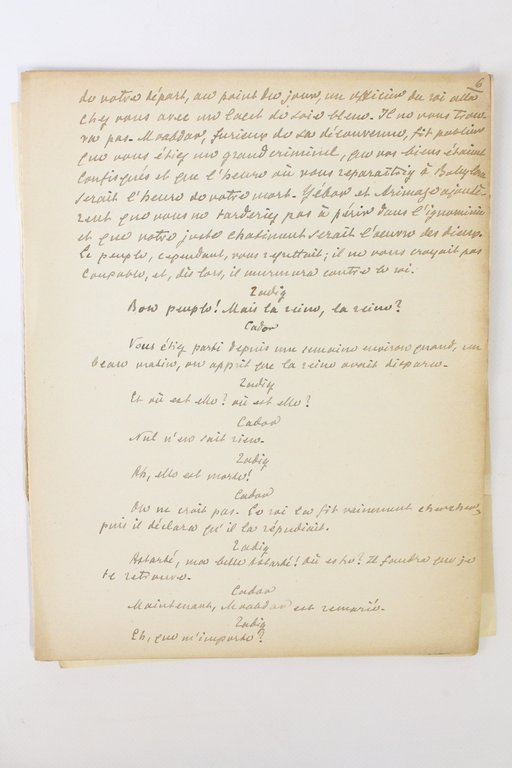 6
de votre départ, au point du jour, un officier du roi alla
chez vous avec un lacet de soie bleue. Il ne vous trou-
va pas. Moabdar, furieux de sa déconvenue, fit publier
que vous étiez un grand criminel, que vos biens étaient
confisqués et que l'heure où vous reparaîtriez à Babylone
serait l'heure de votre mort. Yébor et Arimaze ajoutè-
rent que vous ne tarderiez pas à périr dans l'ignominie
et que votre juste châtiment serait l'oeuvre des dieux.
Le peuple, cependant, vous regrettait; il ne vous croyait pas
coupable, et, dès lors, il murmura contre le roi.
Zadig
Bon peuple! Mais la reine, la reine?
Cador
Vous étiez parti depuis une semaine environ quand, un
beau matin, on apprit que la reine avait disparu.
Zadig
Et où est elle? où est elle?
Cador
Nul n'en sait rien.
Zadig
Ah, elle est morte!
Cador
On ne croit pas. Le roi la fit vainement chercher,
puis il déclara qu'il la répudiait.
Zadig
Astarté, ma belle Astarté! Où es tu? Il faudra que je
te retrouve.
Cador
Maintenant, Moabdar est remarié.
Zadig
Eh, que m'importe?